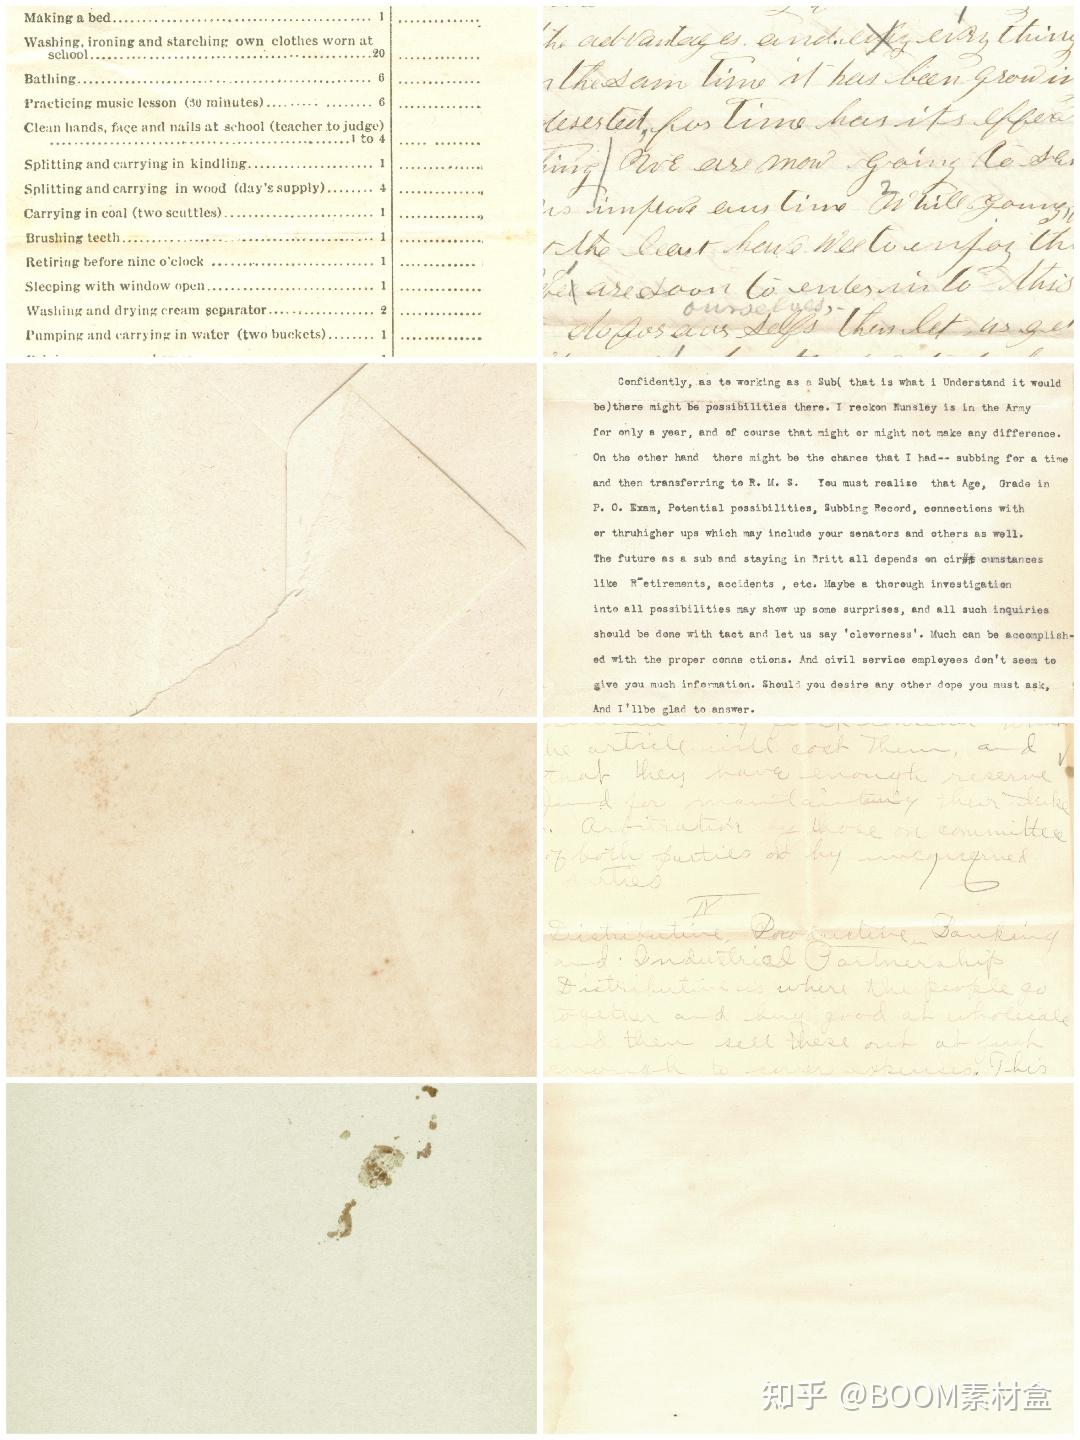 Making a bed 1
Washing, ironing and starching own clothes worn at
school 20
Bathing 6
Practicing music lesson (30 minutes) 6
Clean hands, face and nails at school (teacher to judge)
1 to 4
Splitting and carrying in kindling 1
Splitting and carrying in wood (day's supply) 4
Carrying in coal (two scuttles) 1
Brushing teeth 1
Retiring before nine o'clock 1
Sleeping with window open 1
Washing and drying cream separator 2
Pumping and carrying in water (two buckets) 1
1
the advantages and every thing
the sam time it has been growin
deserted, for time has its effer
ting We are now going to
improve ous time While young
the least have Wee to enjoy th
are soon to enter in to this
ourselves
do for ous selfs then let us ge
Confidently, as to working as a Sub( that is what i Understand it would
be)there might be possibilities there. I reckon Hunsley is in the Army
for only a year, and of course that might or might not make any difference.
On the other hand there might be the chance that I had-- subbing for a time
and then transferring to R. M. S. You must realize that Age, Grade in
P. O. Exam, Potential possibilities, Subbing Record, connections with
or thruhigher ups which may include your senators and others as well.
The future as a sub and staying in Britt all depends on cir cumstances
like Retirements, accidents , etc. Maybe a thorough investigation
into all possibilities may show up some surprises, and all such inquiries
should be done with tact and let us say 'cleverness'. Much can be accomplish-
ed with the proper conne ctions. And civil service employees don't seem to
give you much information. Should you desire any other dope you must ask,
And I'llbe glad to answer.
he article will cost them, and
that they have enough reserve
fund for maintaining their
Arbitration those on committee
of both parties or by
IV
Distributive, Productive, Banking
and Industrial Partnership
Distributive is where the people go
together and buy good at wholesale
and then sell these out at just
enough to cover expenses. This
知乎 @BOOM素材盒